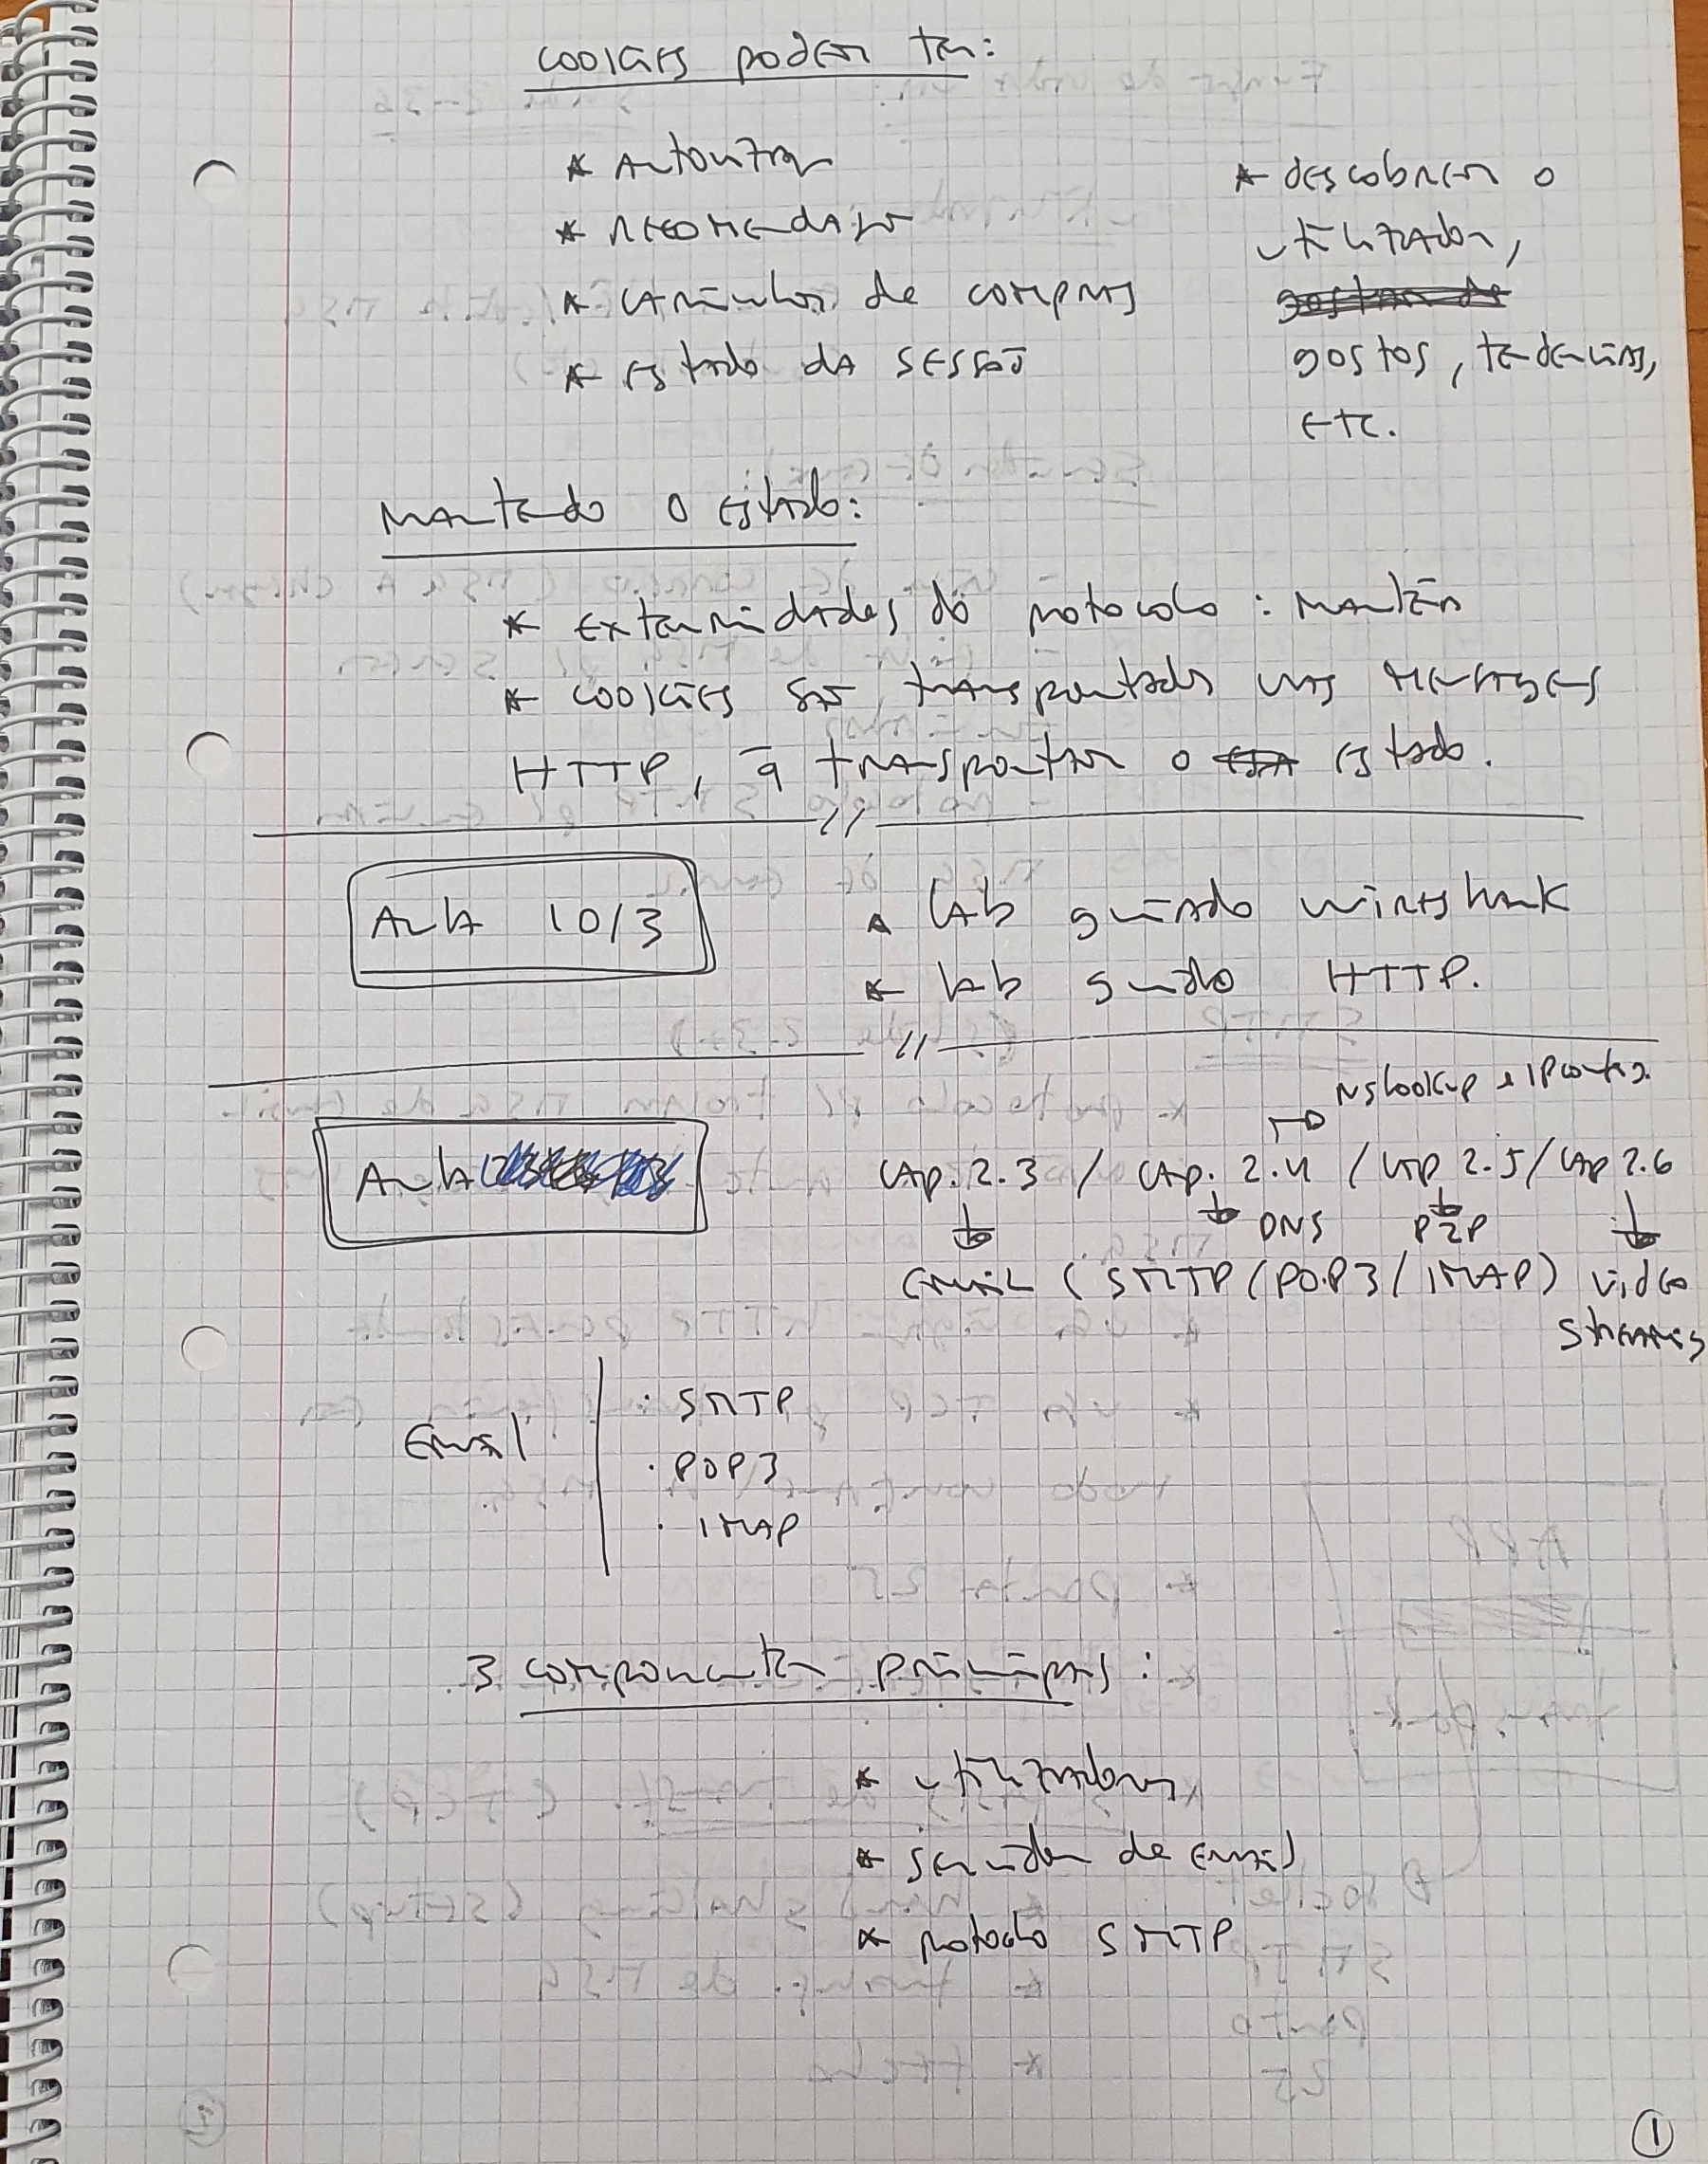 cookies podem ter:
* Autorizaçao
* recomendação
* carrinhos de compras
* estado da sessão
* descobrem o
utilizador,
gostos, tendencias,
etc.
Mantendo o estado:
* extermidades do protocolo : mantêm
* cookies são transportados nas mensagens
HTTP, a transportar o estado.
//
Aula 10/3
* lab guiado wireshark
* lab guido HTTP.
//
Nslookup e IPconfig.
Aula
Cap. 2.3 / Cap. 2.4 / Cap 2.5 / Cap 2.6
DNS P2P
email (SMTP (POP3/IMAP) video
streams
Email
: SMTP
. POP3
. IMAP
3 componentes principais :
* utilizadores
* servidor de email
* protocolo SMTP
1